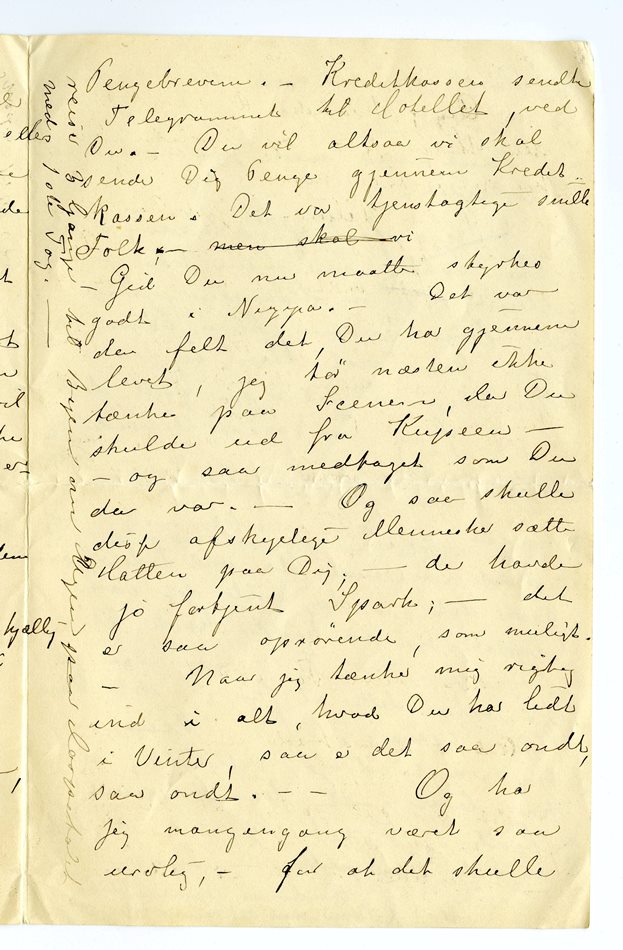 Pengebrevene. – Kreditkassen sendte
Telegrammet til Hotellet, ved
Du. – Du vil altsaa vi skal
sende Dig Penge gjennem Kredit-
kassen. Det var tjenstagtige snille
Folk, – men skal vi
– Gid Du nu maatte styrkes
godt i Nizza. – Det var
den felt det, Du har gjennem
levet, jeg tør næsten ikke
tænke paa Scenen, da Du
skulde ud fra Kupeen –
– og saa medtaget som Du
da var. – Og saa skulle
disse afskyelige Mennesker sætte
Hatten paa Dig; – de havde
jo fortjent Spark; – det
er saa oprørende, som muligt.
– Naar jeg tænker mig rigtig
ind i alt, hvad Du har lidt
i Vinter, saa er det saa ondt,
saa ondt. – – Og har
jeg mangengang været saa
urolig, – for at det skulle
reise 3 Gange til Byen om Ugen, paa
med 1 ote Tog. –
eller
de
vil
er
kjællig